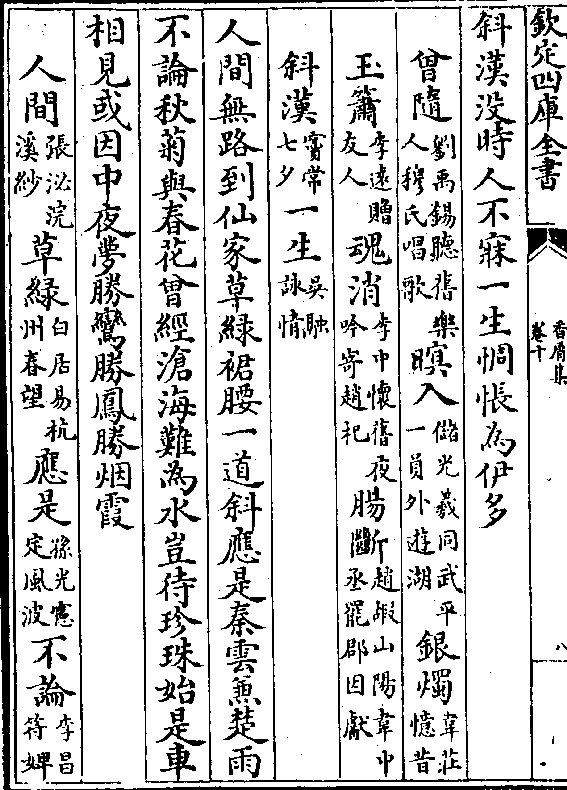 欽定四庫全書
香屑集
卷十
八
斜漢没時人不寐一生惆悵為伊多
曾隨劉禹錫聽舊樂人穆氏唱歌暝入儲光羲同武平一員外遊湖銀燭韋莊憶昔
玉簫李遠贈友人魂消李中懷舊夜吟寄趙杞腸斷趙嘏山陽韋中丞罷郡因獻
斜漢竇常七夕一生吳融詠情
人間無路到仙家草緑裙腰一道斜應是秦雲兼楚雨
不論秋菊與春花曾經滄海難為水豈待珍珠始是車
相見或因中夜夢勝鸞勝鳳勝烟霞
人間張泌浣溪紗草緑白居易杭州春望應是孫光憲定風波不論李昌符婢